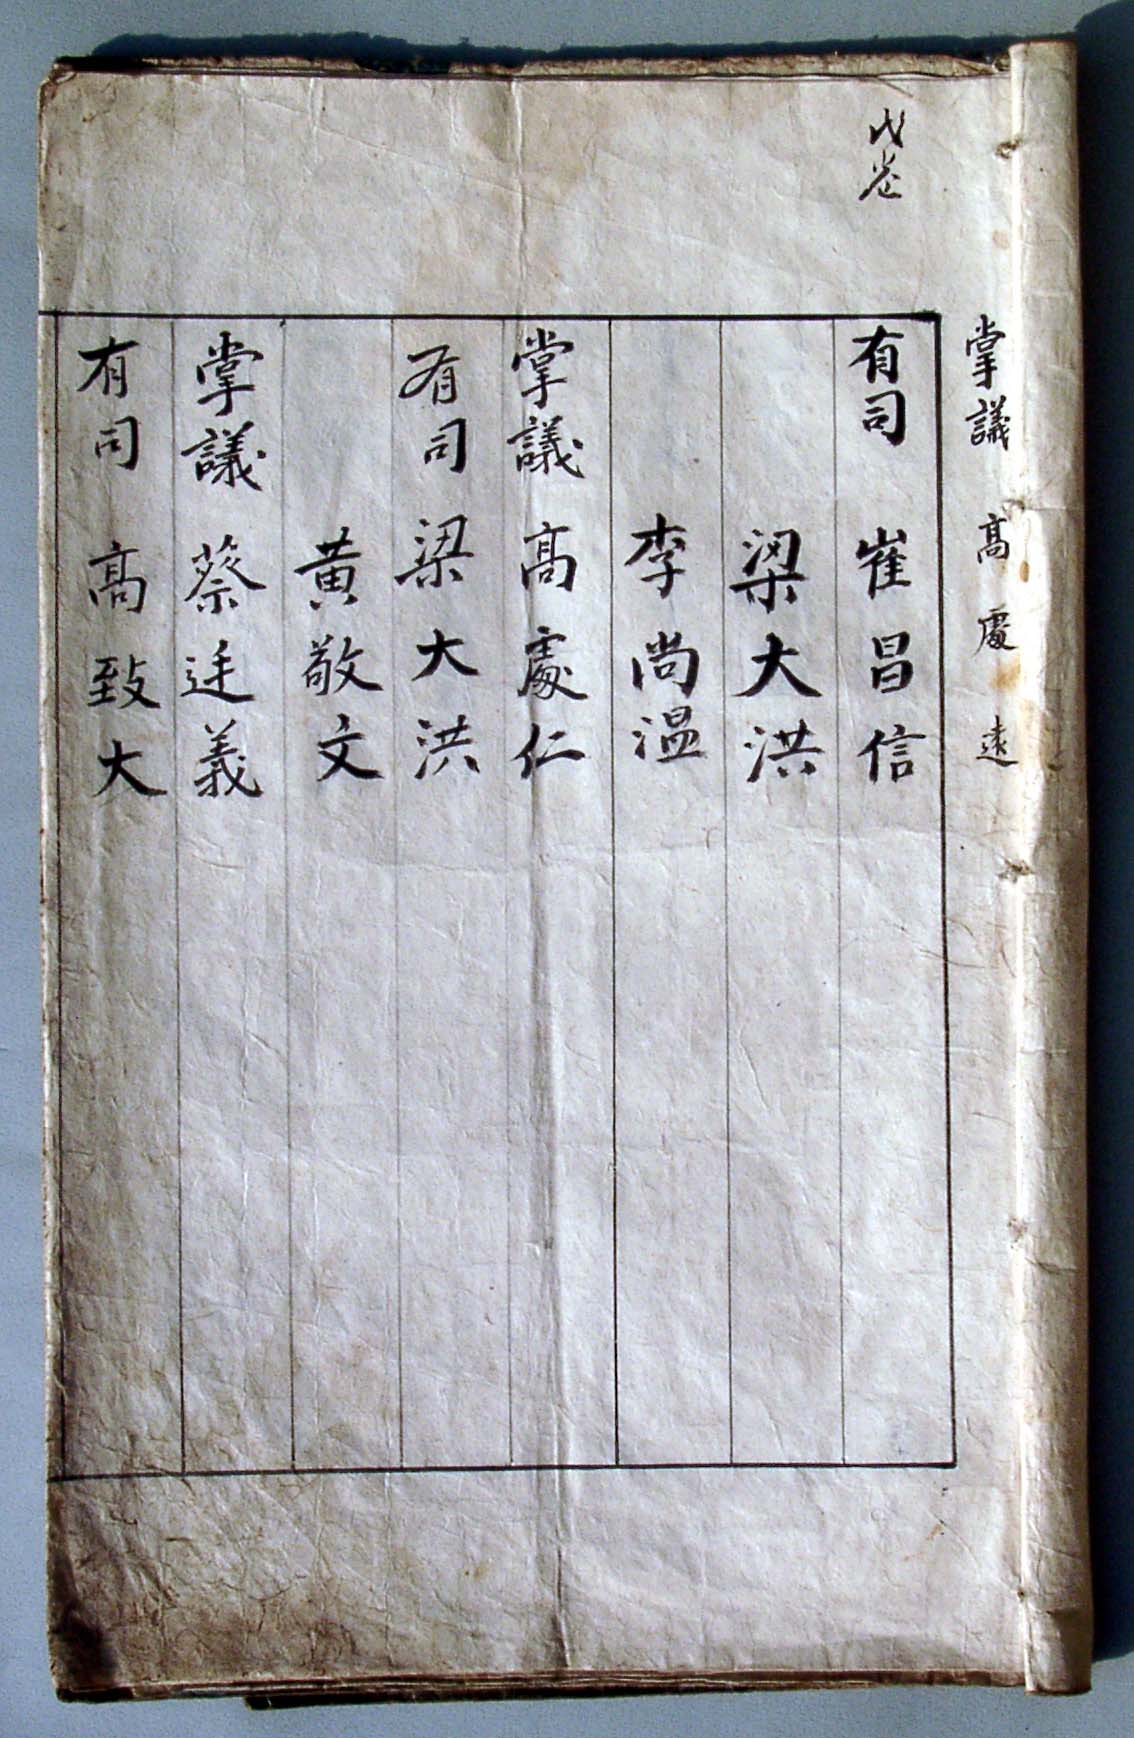 戊卷
掌議 高處遠
有司 崔昌信
梁大洪
李尚溫
掌議 高處仁
有司 梁大洪
黃敬文
掌議 蔡廷義
有司 高致大